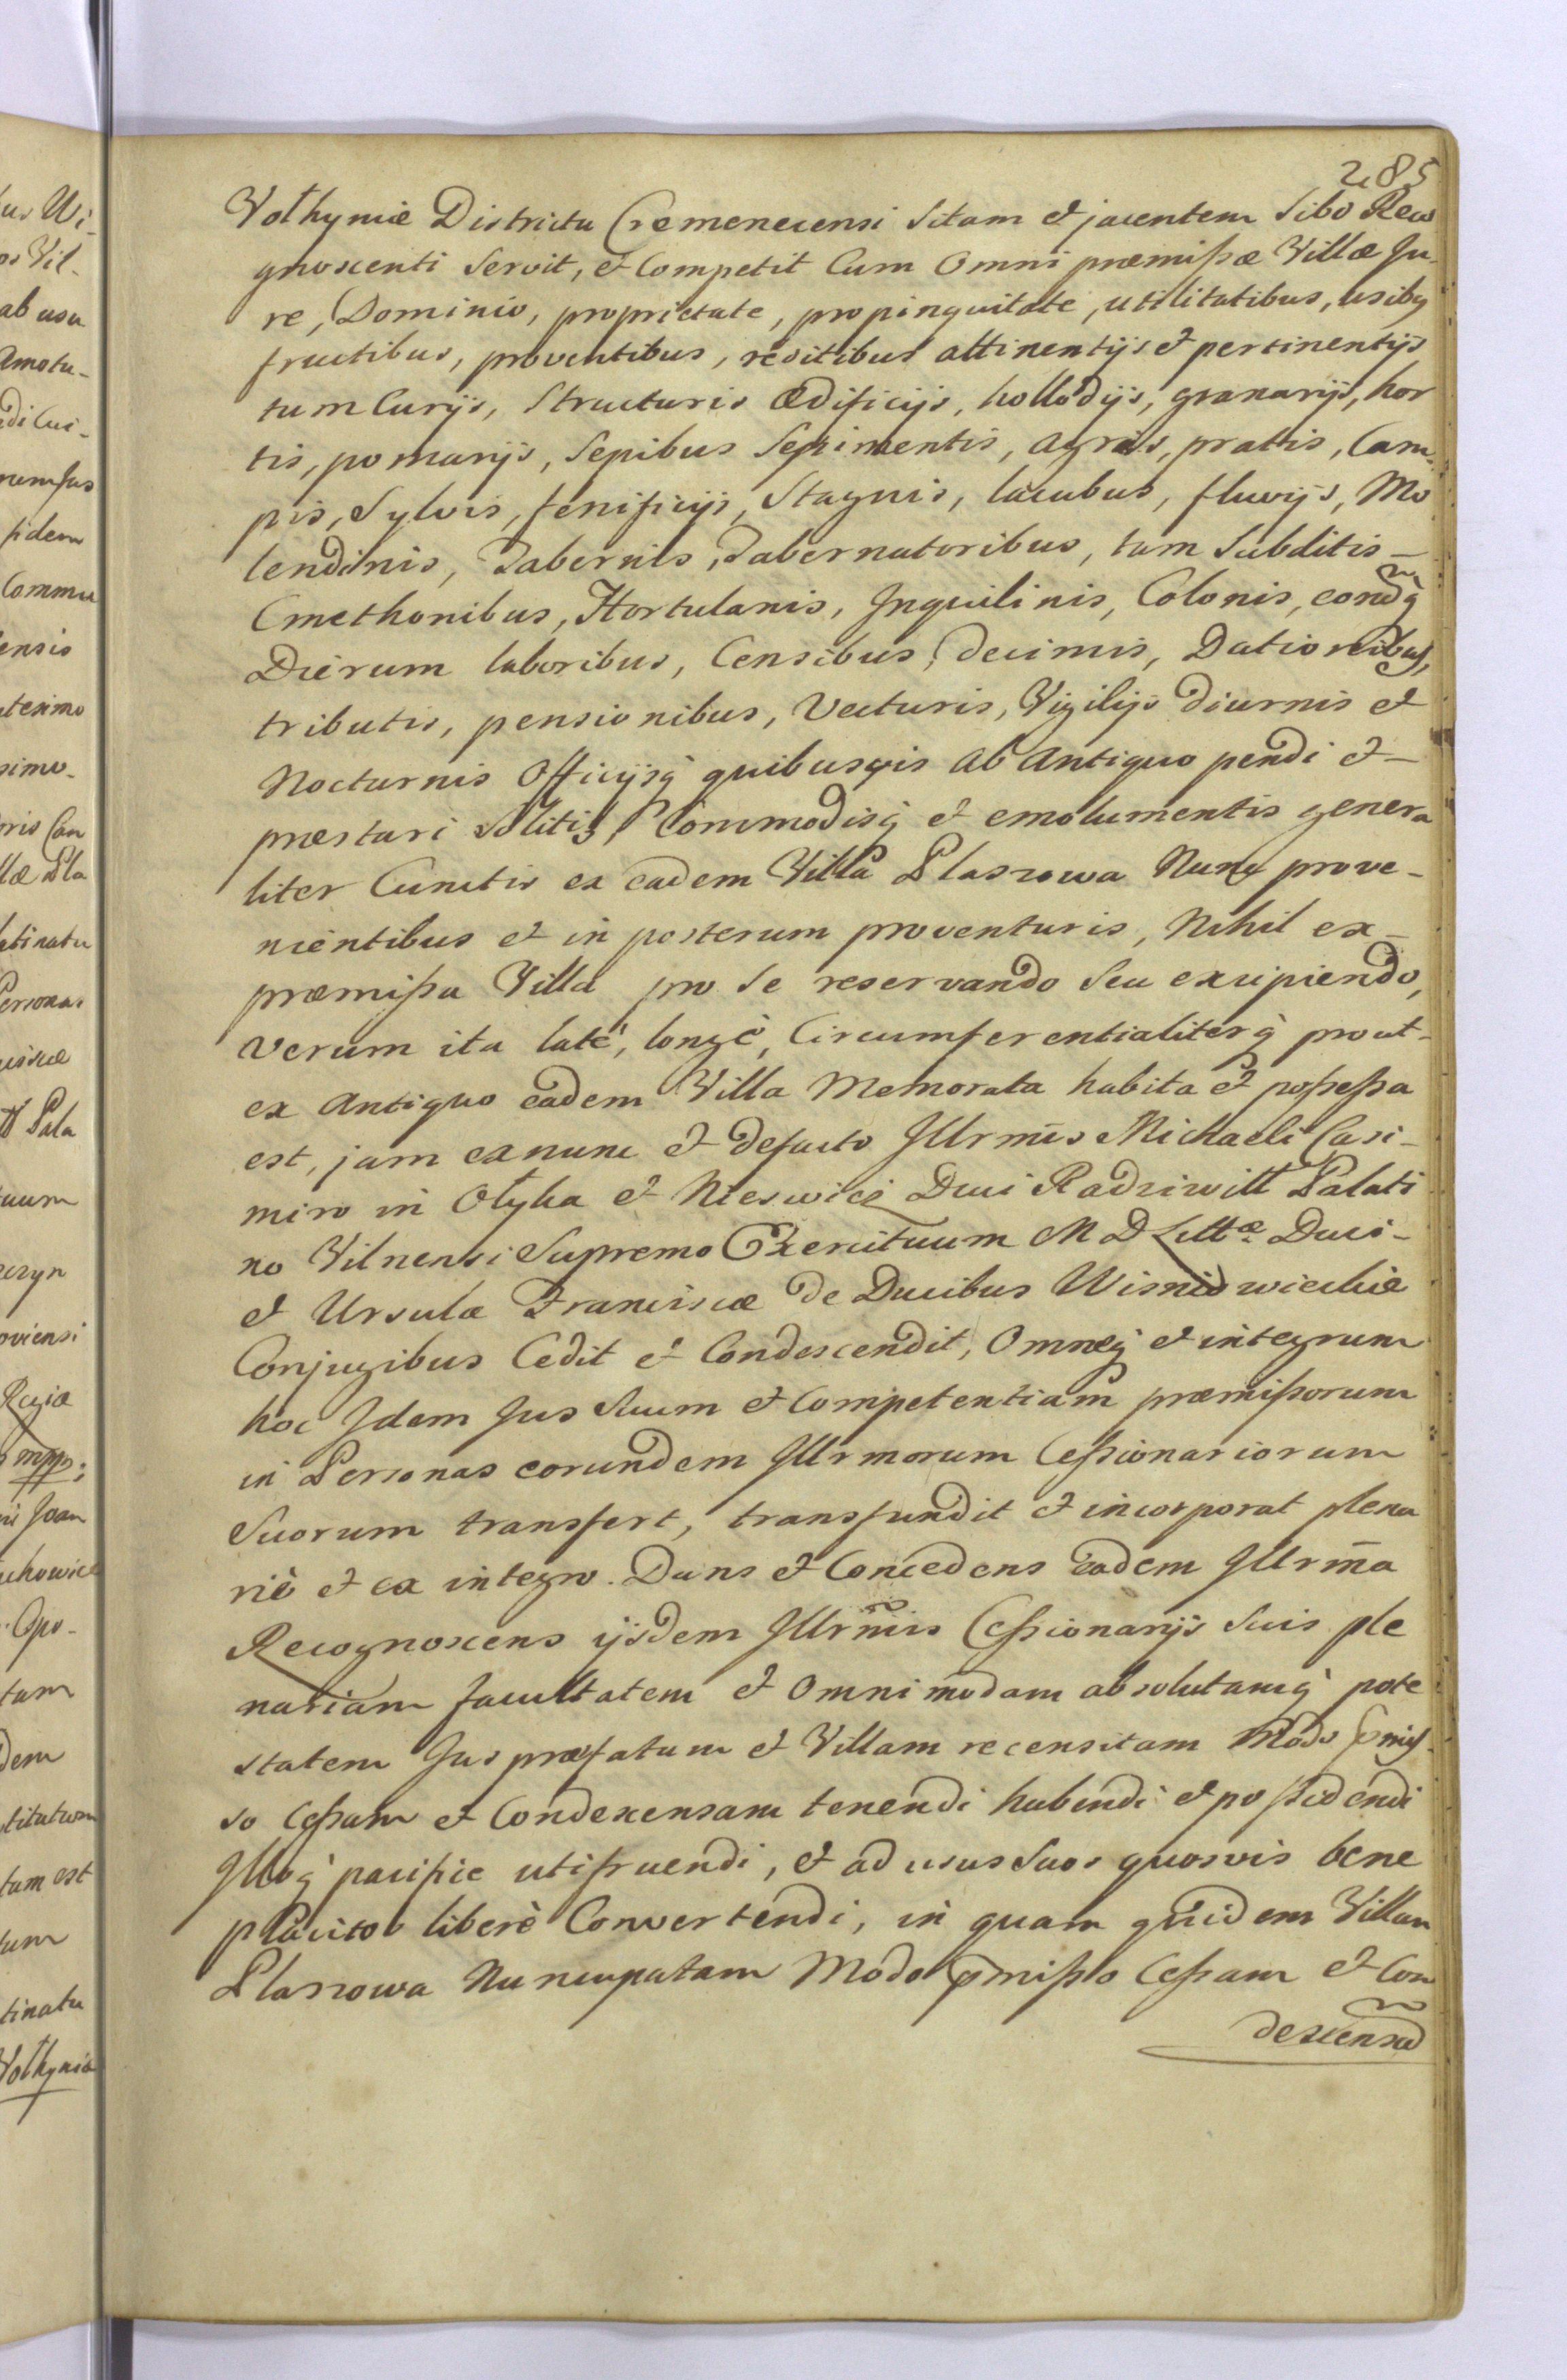 285
Vołhyniæ Districtu Cremenecensi Sitam et jacentem Sibo Reco
gnoscenti Servit, et Competit Cum Omni præmißæ Villæ Ju-
re, Dominio, proprietate, propinquitate, utilitatibus, usibq
fructibus, proventibus, reditibus attinentijs et pertinentijs
tum Curijs, Structuris Ædificijs, hollodijs, granarijs, hor
tis, pomarijs, Sepibus Sepimentis, agris, prattis, Cam-
pis, Sylvis, fenificijs, Stagnis, lacubus, fluvijs, Mo
lendinis, Tabernis, Tabernatoribus, tum Subditis –
Cmethonibus, Hortulanis, Inquilinis, Colonis, eorūdq̀
Dierum laboribus, Censibus, Decimis, Dationibus,
tributis, pensionibus, Vecturis, Vigilijs diurnis et
Nocturnis Officijsq̀ quibusvis ab Antiquo pendi et –
præstari Solitis, Commodisq̀ et emolumentis genera
liter Cunctis ex eadem Villa Plaszowa Nunc prove-
nientibus et in posterum proventuris, Nihil ex –
præmißa Villa pro Se reservando Seu excipiendo,
Verum ita latè, longè, Circumferentialiterq̀ prout –
ex Antiquo eadem Villa Memorata habita et poßeßa
est, jam exnunc et defacto Illrmīs Michaeli Casi-
miro in Ołyka et Nieswicz Duci Radziwiłł Palati
no Vilnensi Supremo Exercituum M D Littæ Duci –
et Ursulæ Franciscæ de Ducibus Wisniowieckie
Conjugibus Cedit et Condescendit, Omneq̀ et integrum
hoc Idem Jus Suum et Competentiam præmißorum
in Personas eorundem Illrmorum Ceßionariorum
Suorum transfert, transfundit et incorporat plena
riè et ex integro. Dans et Concedens eadem Illrm̄a
Recognoscens ijsdem Illrm̄is Ceßionarijs Suis ple
nariam facultatem et Omnimodam absolutamq̀ pote
statem Jus præfatum et Villam recensitam Modo p̄mis-
so Ceßam et Condescensam tenendi habendi et poßidendi
Illoq̀ pacifice utifruendi, et ad usus Suos quosvis bene
placitos liberè Convertendi, in quam quidem Villam
Plaszowa Nuncupatam Modo p̄mißo Ceßam et Con
descensā